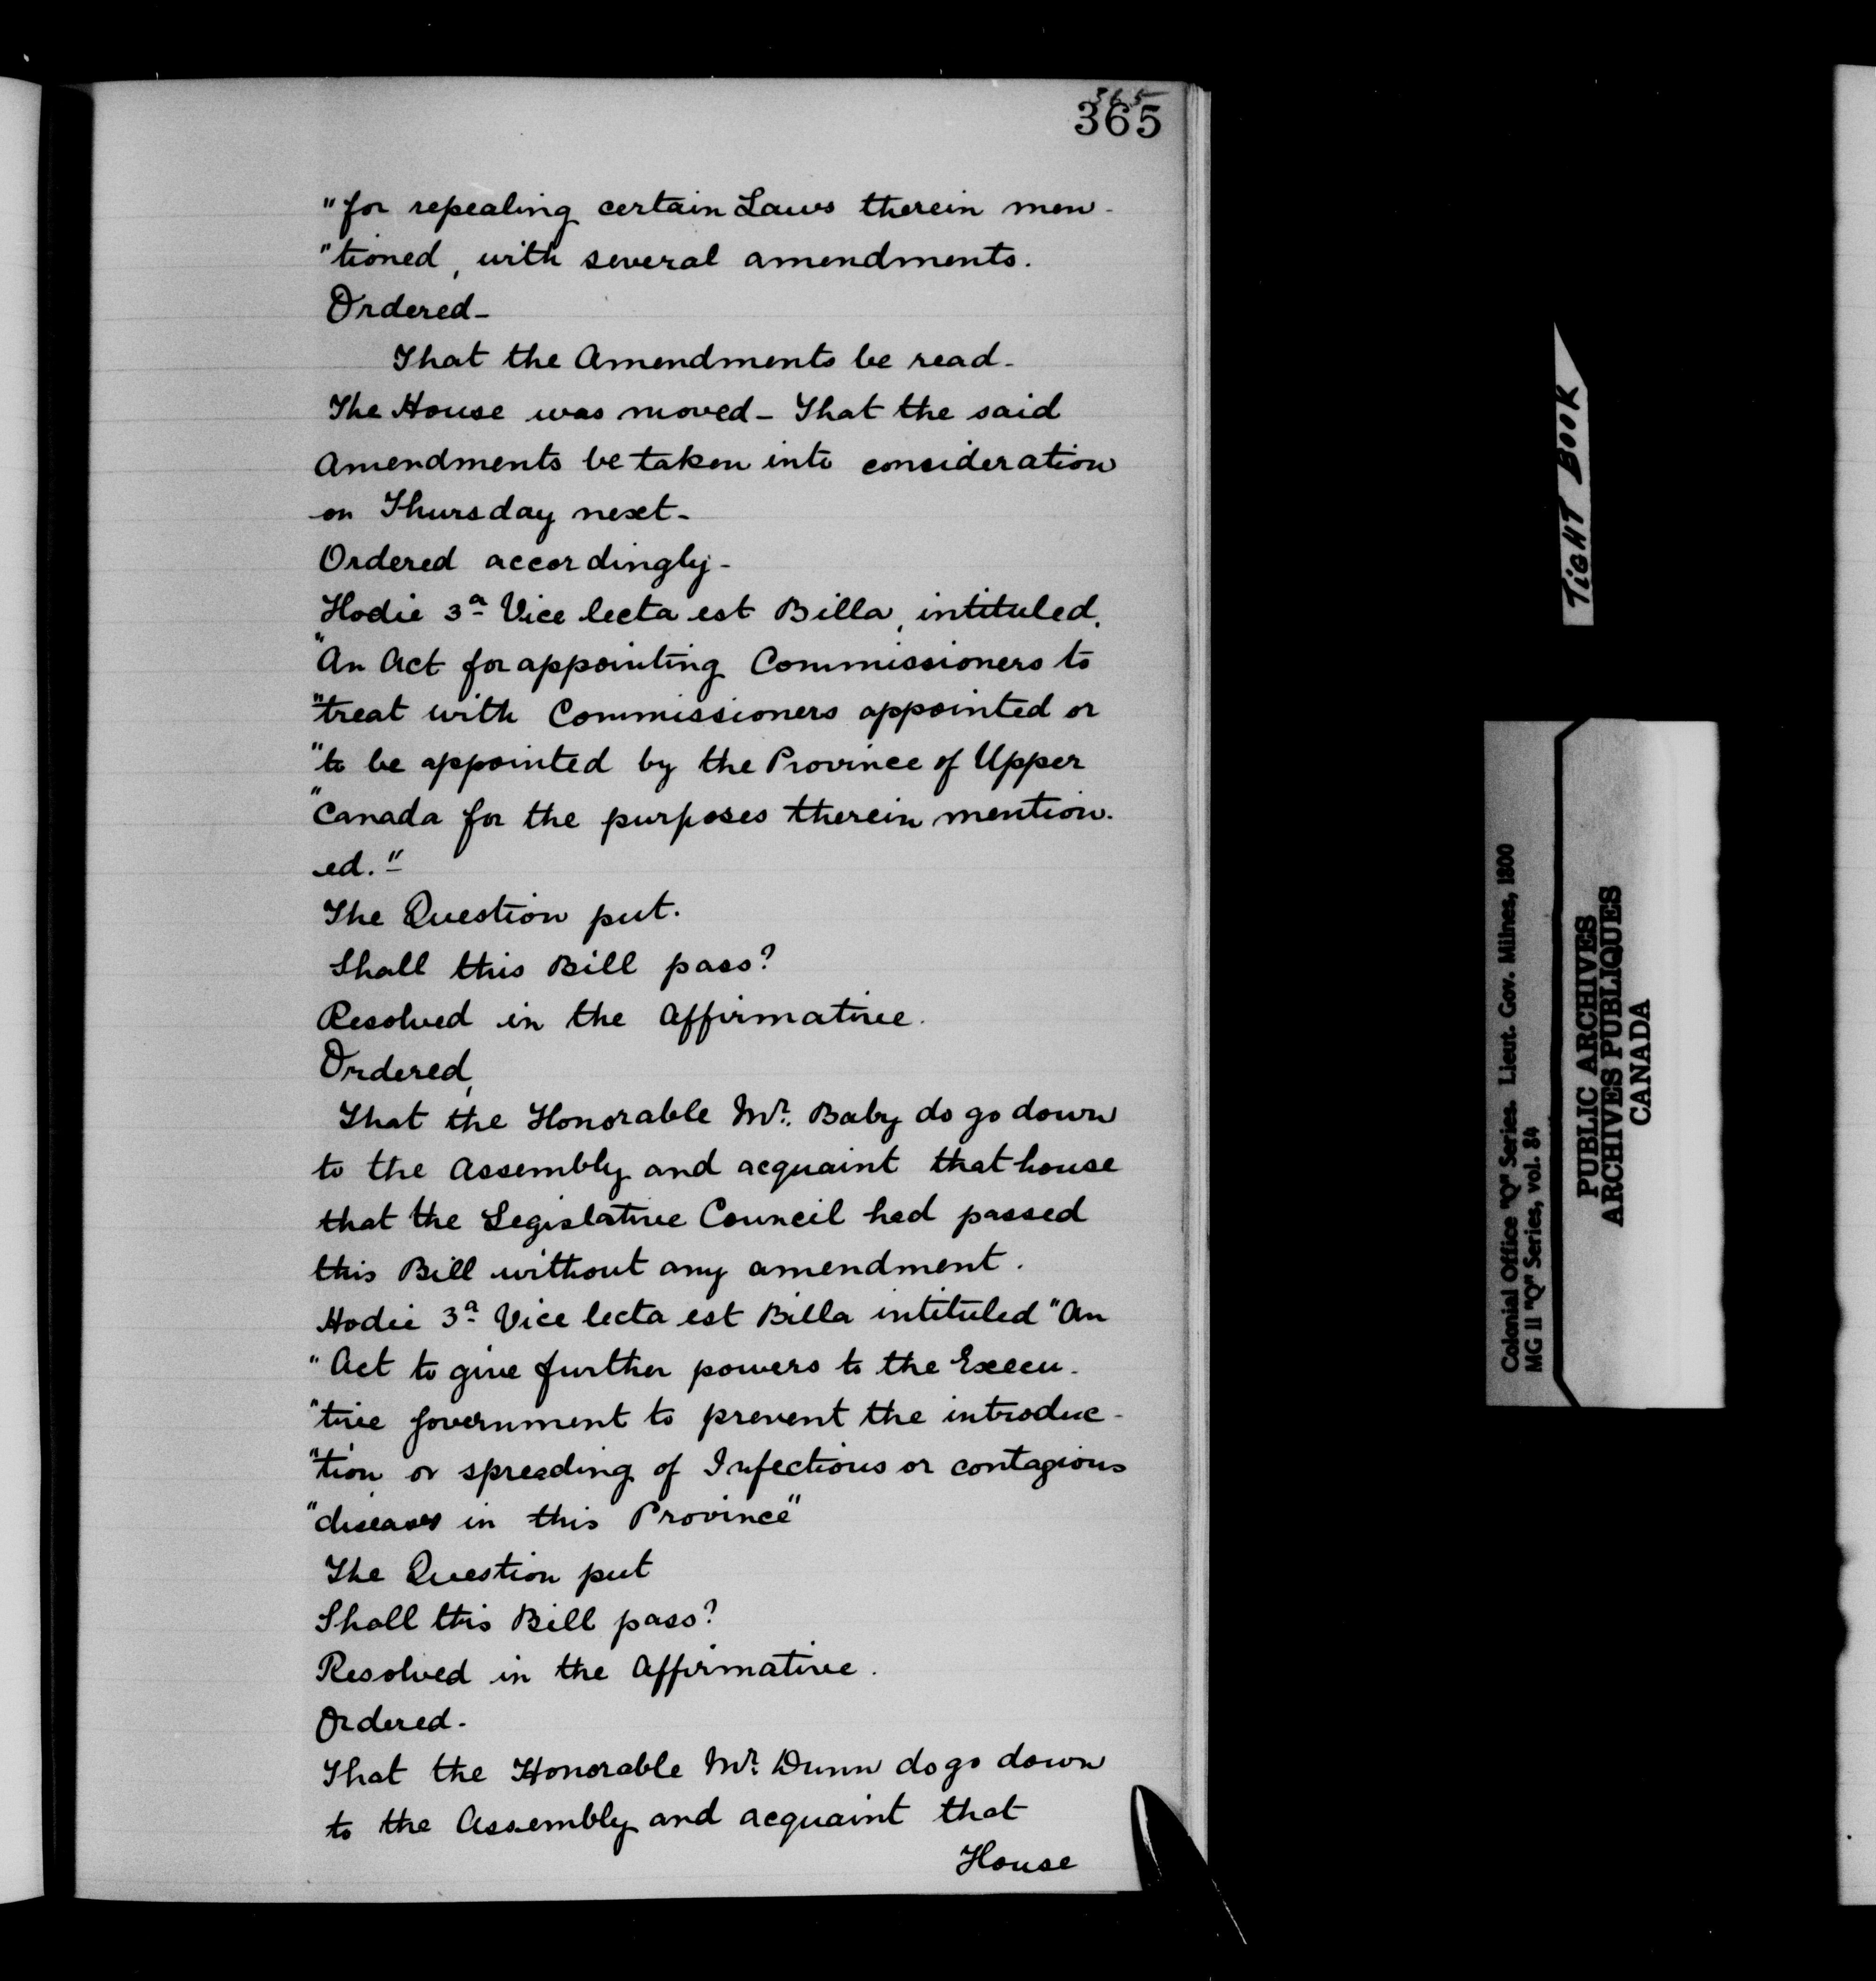 365
365
"for repealing certain Laws therein men-
"tioned, with several amendments.
Ordered-
That the Amendments be read-
The House was moved- That the said
Amendments be taken into consideration
on Thursday next-
Ordered accordingly-
Hodie 3ª Vice lecta est Billa, intituled,
"An Act for appointing Commissioners to
"treat with Commissioners appointed or
"to be appointed by the Province of Upper
"Canada for the purposes therein mention-
ed."
The Question put.
Shall this Bill pass?
Resolved in the Affirmative.
Ordered,
That the Honorable Mr. Baby do go down
to the Assembly and acquaint that house
that the Legislative Council had passed
this Bill without any amendment.
Hodie 3ª Vice lecta est Billa intituled "An
"Act to give further powers to the Execu-
"tive Government to prevent the introduc-
"tion or spreading of Infectious or contagious
"diseases in this Province"
The Question put
Shall this Bill pass?
Resolved in the Affirmative.
Ordered.
That the Honorable Mr. Dunn do go down
to the Assembly and acquaint that
House
TIGHT BOOK
Colonial Office "Q" Series. Lieut. Gov. Milnes, 1800
MG 11 "Q" Series, vol. 84
PUBLIC ARCHIVES
ARCHIVES PUBLIQUES
CANADA